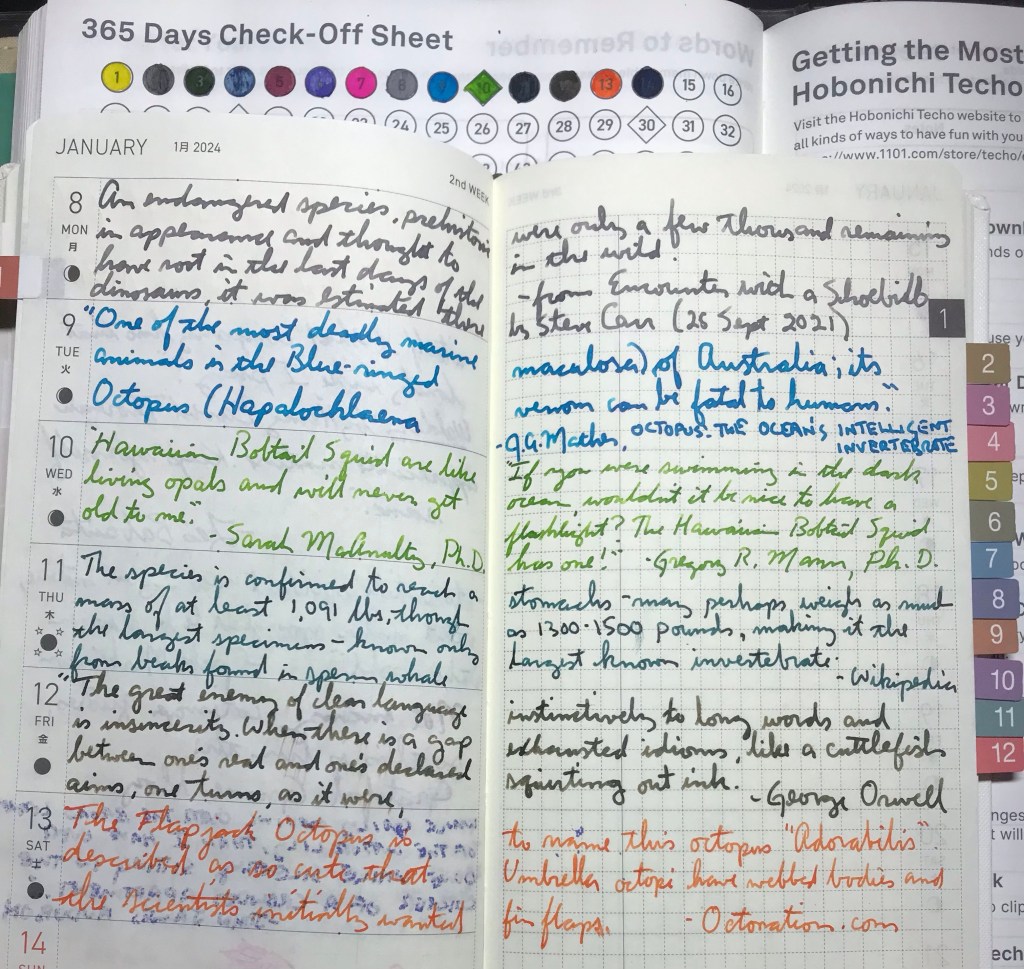 365 Days Check-Off Sheet
Words to Remember
1 3 5 7 8 9 10 13 15 16
24 25 26 27 28 29 30 31 32
Getting the Most
Hobonichi Techo
Visit the Hobonichi Techo website to
all kinds of ways to have fun with you
://www.1101.com/store/techo/
JANUARY 1月 2024
2nd WEEK
8
MON
月
An endangered species, prehistoric
in appearance and thought to
have root in the last days of the
dinosaurs, it was estimated there
were only a few thousand remaining
in the wild.
- from Encounter with a Shoebill
by Steve Carr (26 Sept 2021)
9
TUE
火
"One of the most deadly marine
animals is the Blue-ringed
Octopus (Hapalochlaena
maculosa) of Australia; its
venom can be fatal to humans."
- J.G. Mather, OCTOPUS: THE OCEAN'S INTELLIGENT
INVERTEBRATE
10
WED
水
"Hawaiian Bobtail Squid are like
living opals and will never get
old to me."
- Sarah Ph.D.
"If you were swimming in the dark
ocean, wouldn't it be nice to have a
flashlight? The Hawaiian Bobtail Squid
has one!" - Gregory R. Mann, Ph.D.
11
THU
木
The species is confirmed to reach a
mass of at least 1,091 lbs, though
the largest specimens - known only
from beaks found in sperm whale
stomachs - may perhaps weigh as much
as 1300-1500 pounds, making it the
largest known invertebrate.
- Wikipedia
12
FRI
金
"The great enemy of clear language
is insincerity. When there is a gap
between one's real and one's declared
aims, one turns, as it were,
instinctively to long words and
exhausted idioms, like a cuttlefish
squirting out ink.
- George Orwell
13
SAT
土
The Flapjack Octopus is
described as so cute that
the scientists initially wanted
to name this octopus "Adorabilis".
Umbrella octopi have webbed bodies and
fin flaps. - Octonation.com
14
SUN
1
2
3
4
5
6
7
8
9
10
11
12